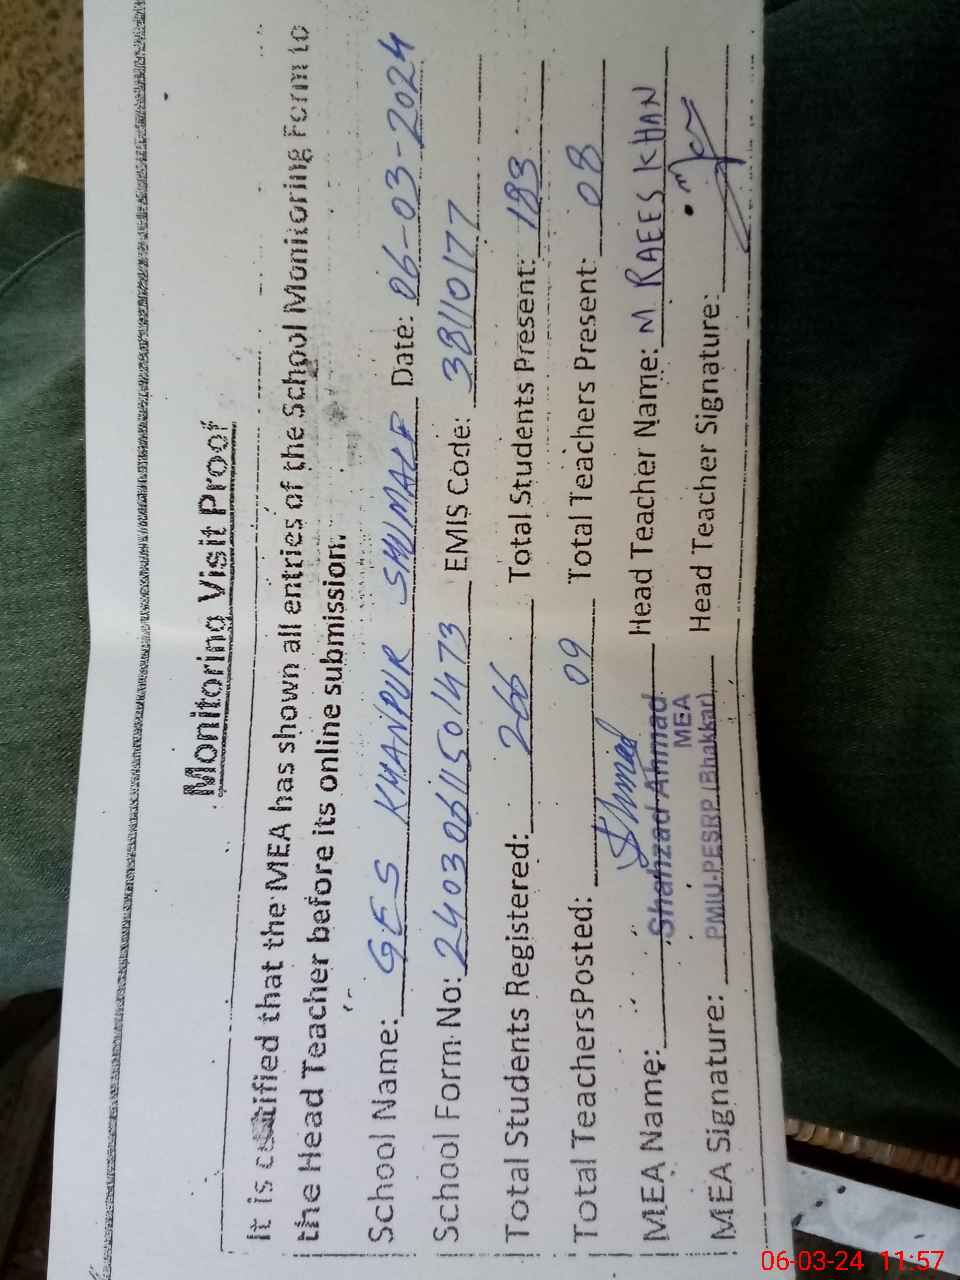 Monitoring Visit Proof
It is certified that the MEA has shown all entries of the School Monitoring Form to
the Head Teacher before its online submission.
School Name: GES KHANPUR SHUMALI Date: 06-03-2024
School Form No: 24030611501473 EMIS Code: 38110177
Total Students Registered: 266 Total Students Present: 183
Total Teachers Posted: 09 Total Teachers Present: 08
MEA Name: Shahzad Ahmad Head Teacher Name: M RAEES KHAN
MEA
MEA Signature: PMIU-PESRP (Bhakkar) Head Teacher Signature:
06-03-24 11:57